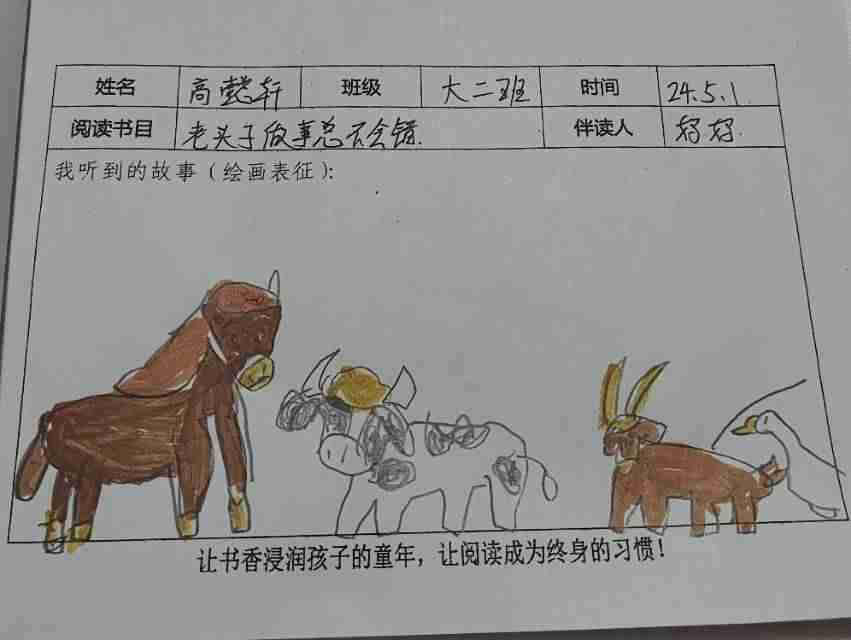 姓名 高懿轩 班级 大二班 时间 24.5.1.
阅读书目 老头子做事总不会错. 伴读人 妈妈.
我听到的故事（绘画表征）：
让书香浸润孩子的童年，让阅读成为终身的习惯！